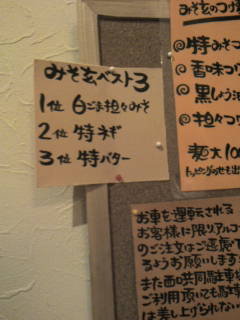 みそ玄ベスト3
1位 白ごま担々みそ
2位 特ネギ
3位 特バター
みそ玄のつけ
◎特みそつ
◎香味つ
◎黒しょう油
◎担々つ
麺大100
トッピングのせも出
お車を運転される
お客様に限りアルコ
のご注文はご遠慮
るようお願いします
また西口共同駐車
ご利用頂いても駐車
は差し上げられない